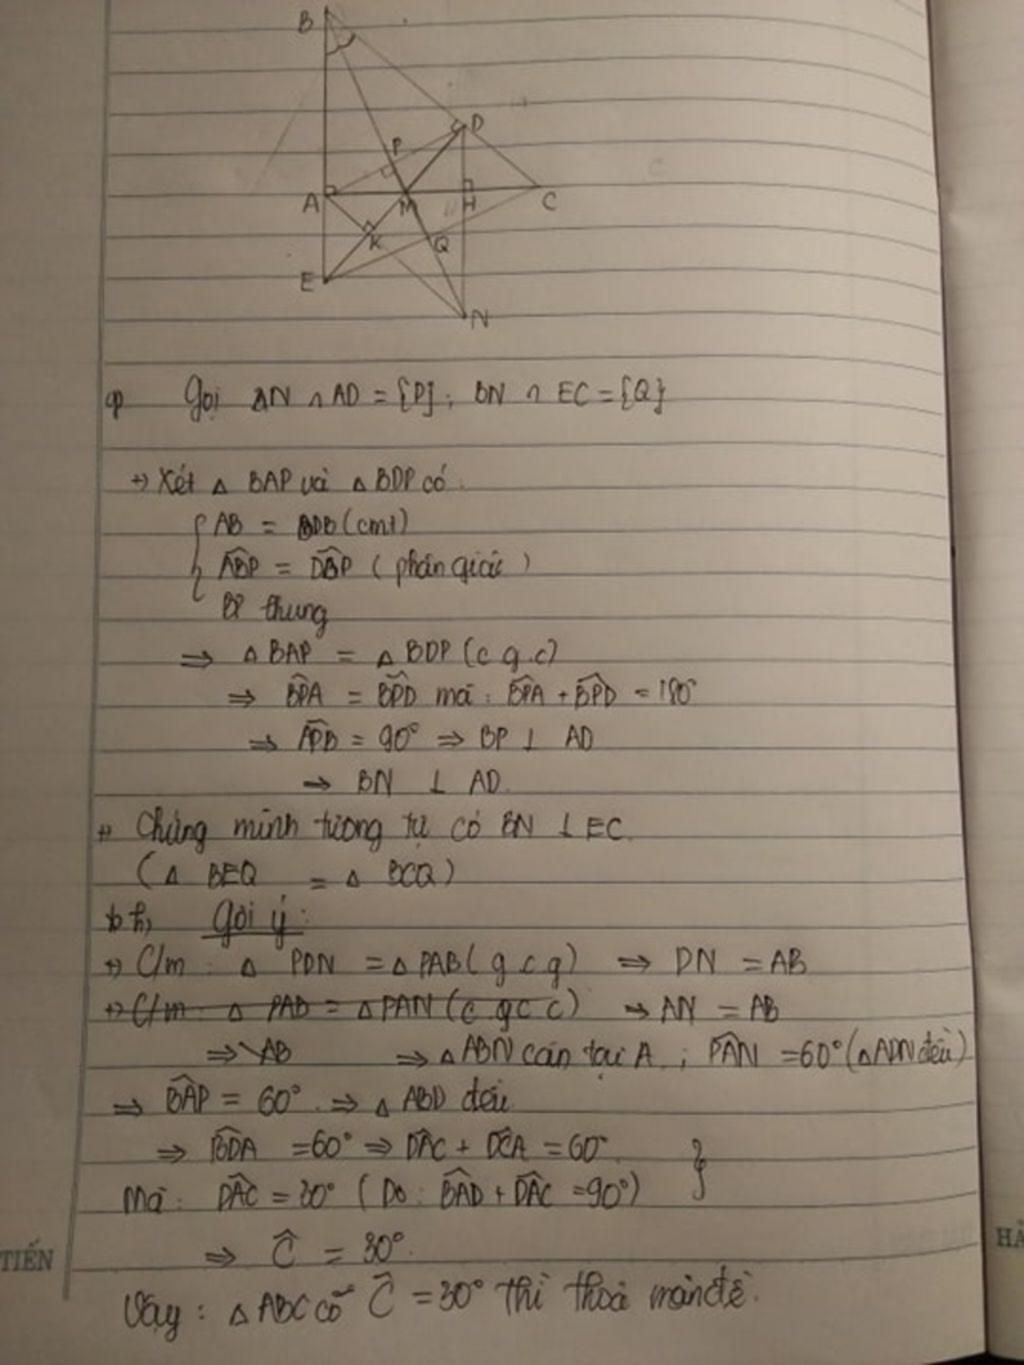 B
D
P
A
M
H
C
K
Q
E
N
g) Gọi BN ∩ AD = {P}; BN ∩ EC = {Q}
+) Xét △ BAP và △ BDP có
AB = BDB (cmt)
ABP = DBP (phân giác)
BP chung
⇒ △ BAP = △ BDP (c g.c)
⇒ BPA = BPD mà: BPA + BPD = 180°
⇒ APB = 90° ⇒ BP ⊥ AD
→ BN ⊥ AD.
+) Chứng minh tương tự có BN ⊥ EC.
(△ BEQ = △ BCQ)
h, Gợi ý:
+) C/m: △ PDN = △ PAB (g c g) ⇒ DN = AB
+) C/m: △ PAB = △ PAN (c gc c) → AN = AB
⇒ AB ⇒ △ ABN cân tại A; PAN = 60° (△ ADN đều)
⇒ BAP = 60° ⇒ △ ABD đều
⇒ BDA = 60° ⇒ DAC + DCA = 60°
Mà: DAC = 30° (Do: BAD + DAC = 90°)
⇒ C = 30°.
Vậy: △ ABC có C = 30° thì thoả mãn đề.
TIẾN
HẢ